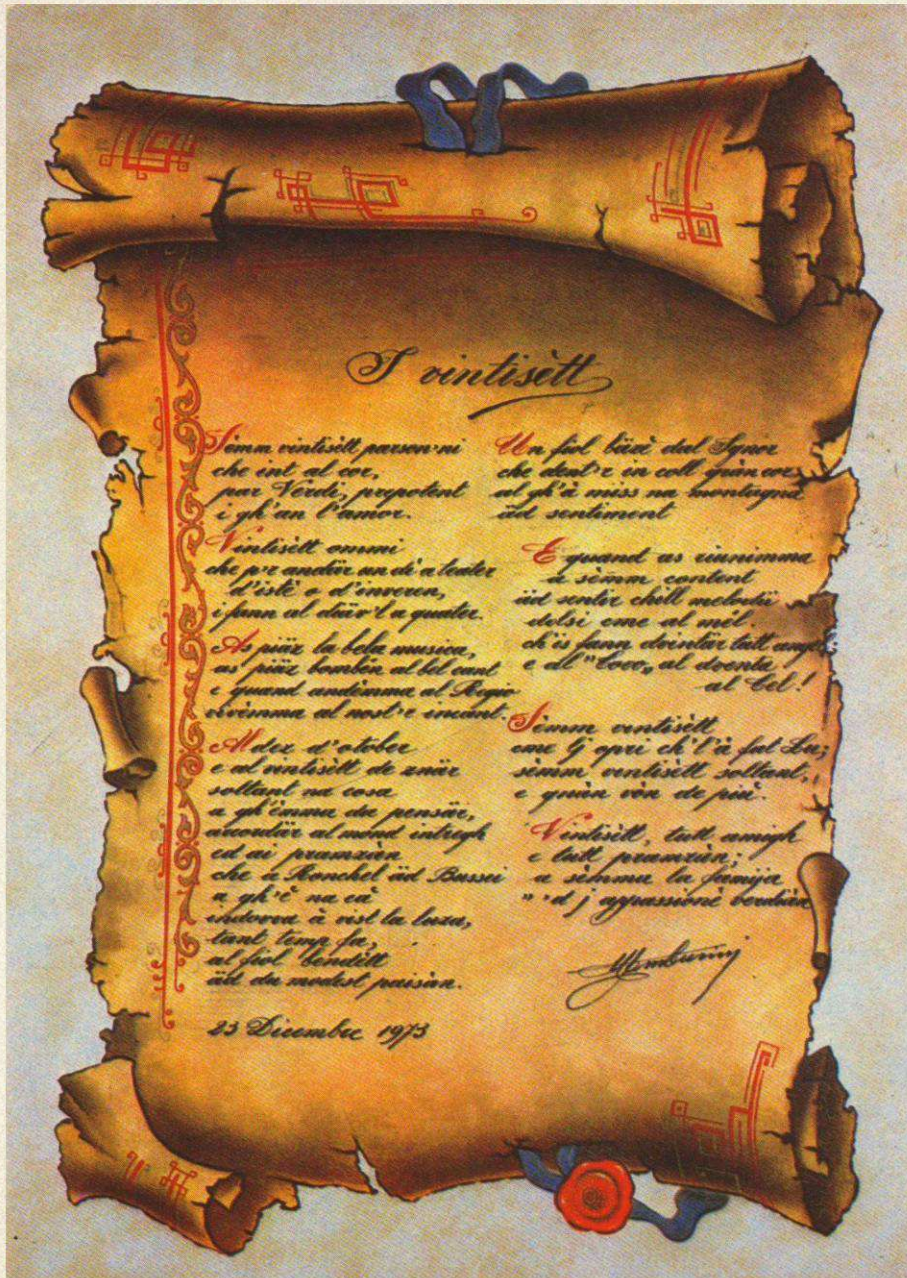 I vintisètt
Sèmm vintisètt parson·ni
che int al cor,
par Verdi, prepotent
i gh'an l'amor.
Vintisètt ommi
che p'r andär un dì a teater
d'istè o d'inveren,
i fann al diàvʼl a quater.
As piäz la bela musica,
as' piäz bombën al bel cant
e quand andèmma al Regio
vivèmma al nost'r incànt.
Al dez d'otober
e al vintisètt de znär
soltant na cosa
a gh'èmma da pensär,
arcordär al mond intregh
ed ai pramzàn
che a Ronchel äd Bussei
a gh'è na cà
indovva à vist la luza,
tant temp fa,
al fiol bendètt
äd du modest paisàn.
23 Dicembre 1973
Un fiol bäzè dal Sgnor
che dent'r in coll gràn cor
al gh'à miss na montagna
äd sentiment
E quand as riunimma
a sèmm content
äd sentir chill melodii
dolsi cme al mèl
ch'is fann dvintär tutt angel
e al "loco„ al dventa
al Cel!
Sèmm vintisètt
cme j' opri ch'l'à fat Lu;
sèmm vintisètt soltant,
e gnàn vòn de più.
Vintisètt, tutt amigh
e tutt pramzàn;
a sèmma la famija
'd j appassionè verdiàn